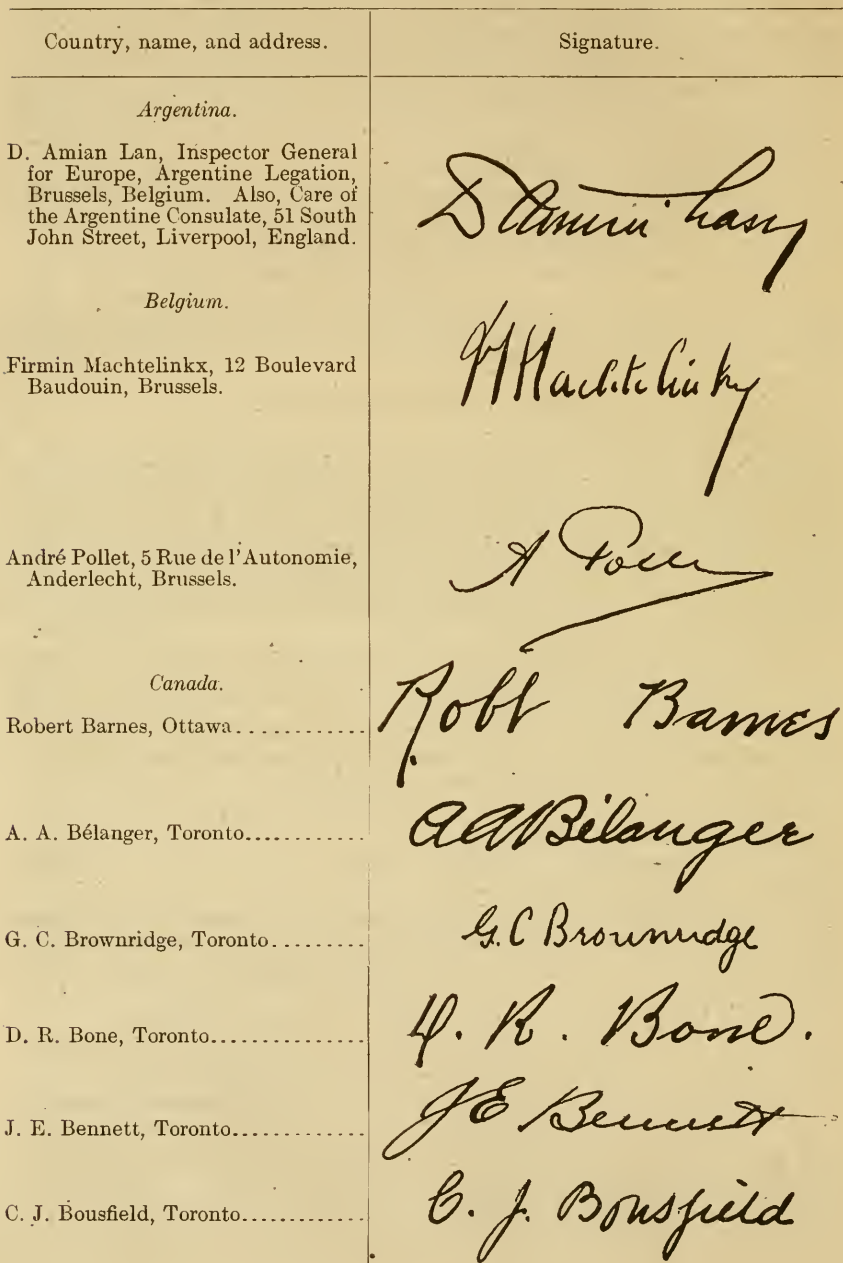 Country, name, and address.
Signature.
Argentina.
D. Amian Lan, Inspector General
for Europe, Argentine Legation,
Brussels, Belgium. Also, Care of
the Argentine Consulate, 51 South
John Street, Liverpool, England.
Belgium.
Firmin Machtelinkx, 12 Boulevard
Baudouin, Brussels.
André Pollet, 5 Rue de l'Autonomie,
Anderlecht, Brussels.
A
Canada.
Robert Barnes, Ottawa............
Robt Barnes
A. A. Bélanger, Toronto............
AA Bélanger
G. C. Brownridge, Toronto.........
G. C Brownridge
D. R. Bone, Toronto...............
D. R. Bone.
J. E. Bennett, Toronto.............
J E Bennett
C. J. Bousfield, Toronto............
C. J. Bousfield